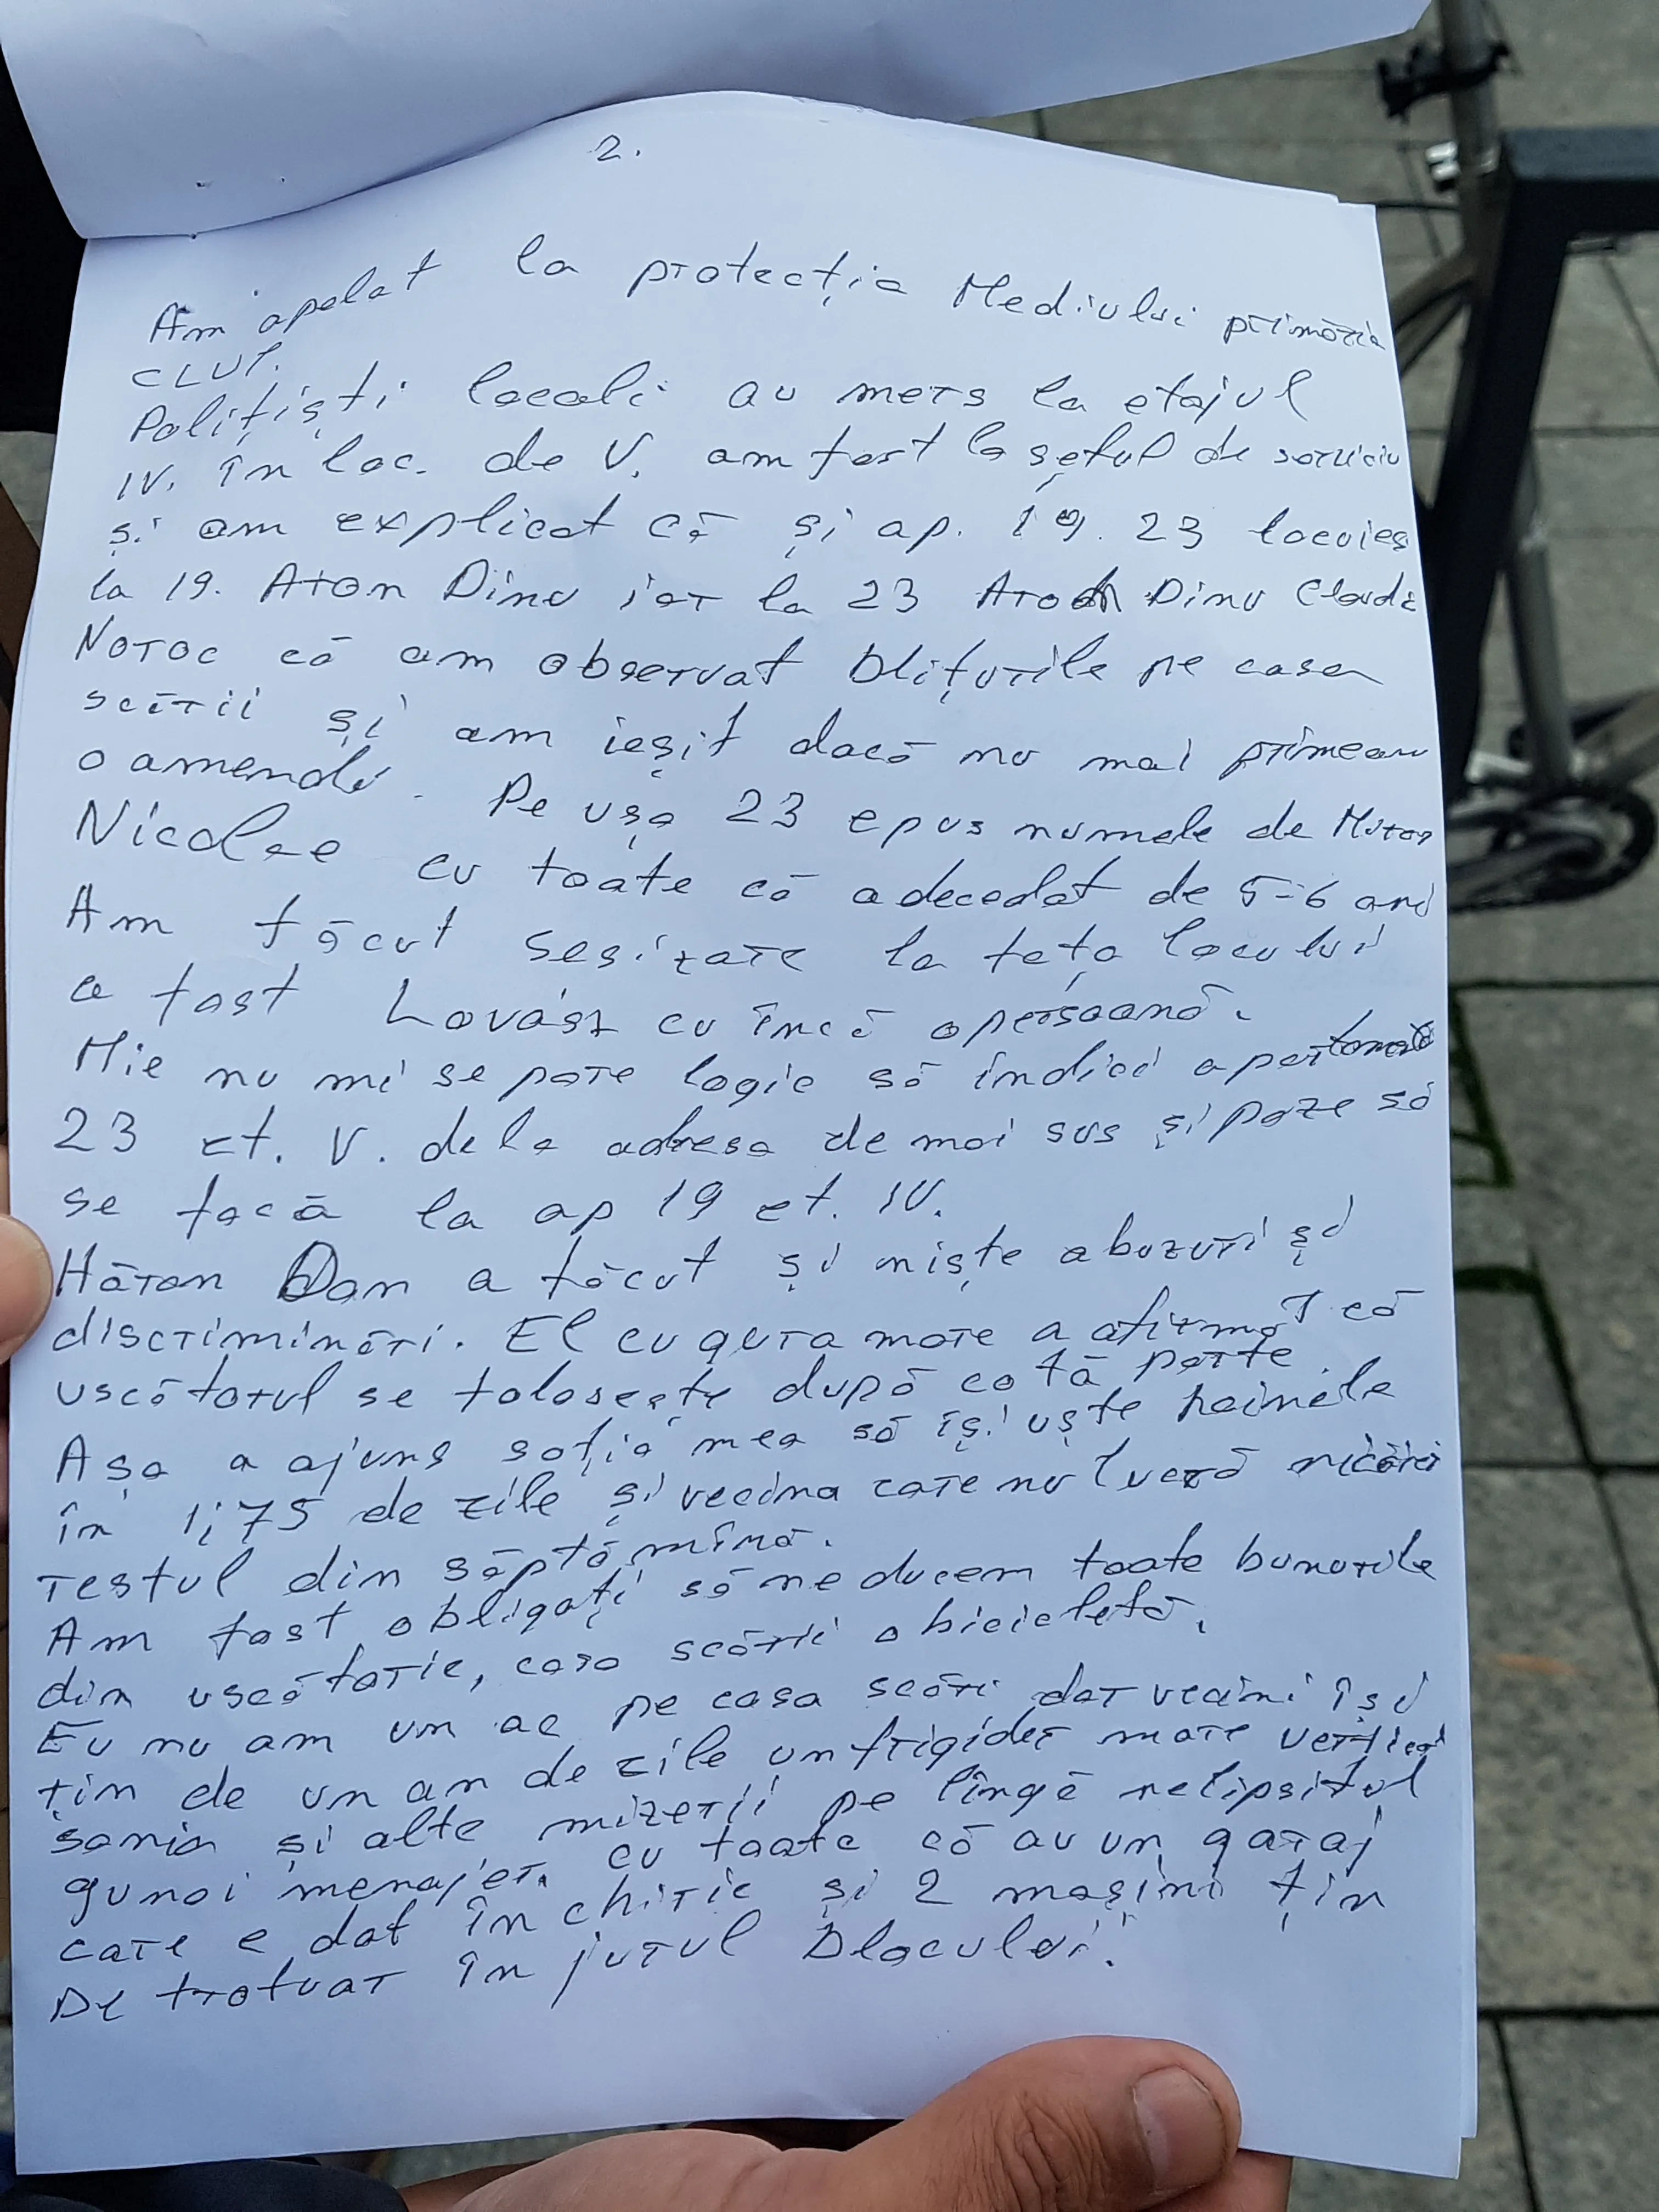 2.
Am apelat la protecția Mediului primăria
CLUJ.
Polițiști locali au mers la etajul
IV. în loc. de V. am fost la șeful de serviciu
și am explicat că și ap. 19. 23 locuies
la 19. Aron Dinu iar la 23 Aron Dinu Claudi
Noroc că am observat blițurile pe casa
scării și am ieșit dacă nu mai primeam
o amendă. Pe ușa 23 e pus numele de
Nicolae cu toate că a decedat de 5-6 ani
Am făcut sesizare la fața locului
a fost Lovász cu încă o persoană.
Mie nu mi se pare logic să indici apartamentul
23 et. V. de la adresa de mai sus și poze să
se facă la ap 19 et. IV.
Hăran Dan a făcut și niște abuzuri și
discriminări. El cu gura mare a afirmat că
uscătorul se folosește după cotă parte.
Așa a ajuns soția mea să își uște hainele
în 1,75 de zile și vecina care nu lucră nicăiri
restul din săptămînă.
Am fost obligați să ne ducem toate bunurile
din uscătorie, casa scării o bicicletă.
Eu nu am un ac pe casa scări dar vecini își
țin de un an de zile un frigider mare vertical
sania și alte mizerii pe lîngă nelipsitul
gunoi menajer. cu toate că au un garaj
care e dat în chirie și 2 mașini țin
pe trotuar în jurul blocului.